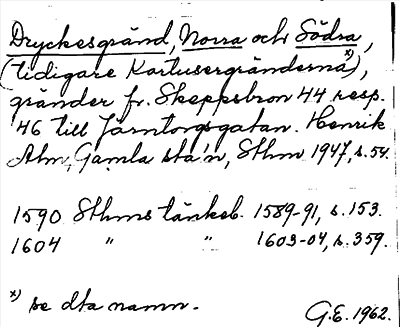 Dryckesgränd, Norra och Södra,
(tidigare Kartusergränderna x)),
gränder fr. Skeppsbron 44 resp.
46 till Järntorgsgatan. Henrik
Alm, Gamla sta'n, Sthm 1947, s. 54.
1590 Sthms tänkeb. 1589-91, s. 153.
1604 " " 1603-04, s. 359.
x) se dta namn.
G.E. 1962.